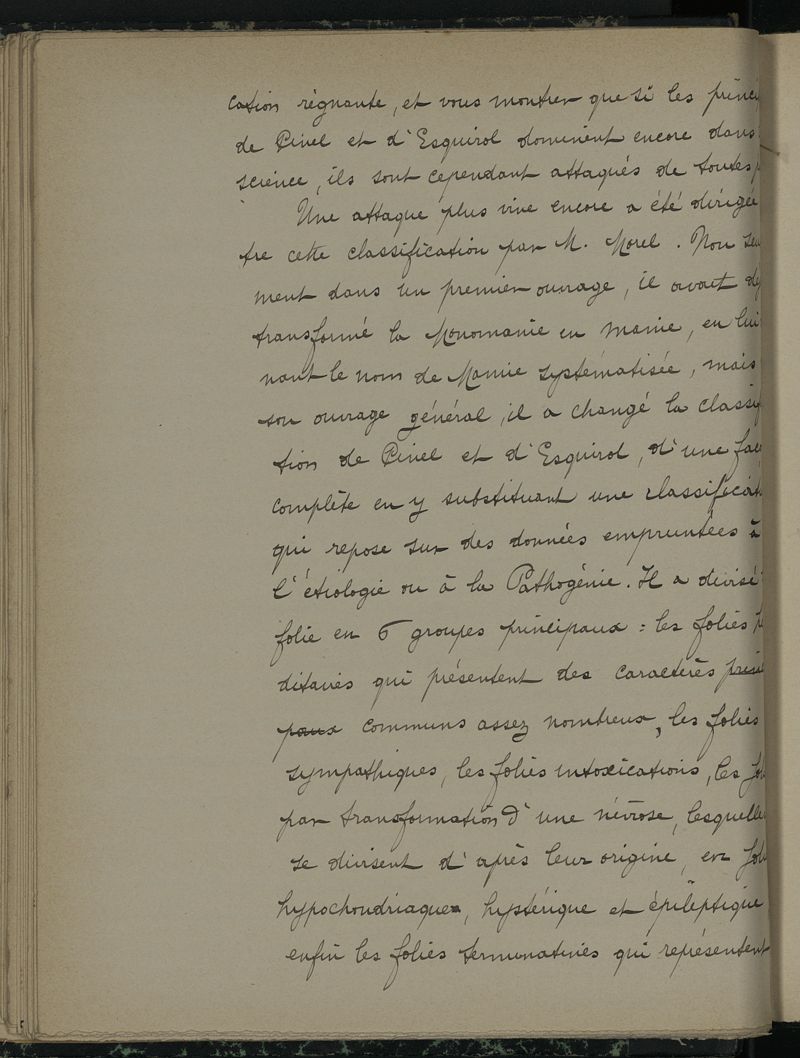 cation règnante, et vous montrer que si les princi
de Pinel et d'Esquirol dominent encore dans
science, ils sont cependant attaqués de toutes p
Une attaque plus vive encore a été dirigée
tre cette classification par M. Morel. Non seu
ment dans un premier ouvrage, il avait dé
transformé la Monomanie en manie, en lui
nant le nom de Manie systématisée, mais
son ouvrage général, il a changé la classif
tion de Pinel et d'Esquirol, d'une faç
complète en y substituant une classificat
qui repose sur des données empruntées à
l'étiologie ou à la Pathogénie. Il a divisé
folie en 6 groupes principaux : les folies h
ditaires qui présentent des caractères princi
paux communs assez nombreux, les folies
sympathiques, les folies intoxications, les fol
par transformation d'une névrose, lesquelles
se divisent d'après leur origine, en fol
hypochondriaque, hystérique et épileptique
enfin les folies terminatives qui représentent